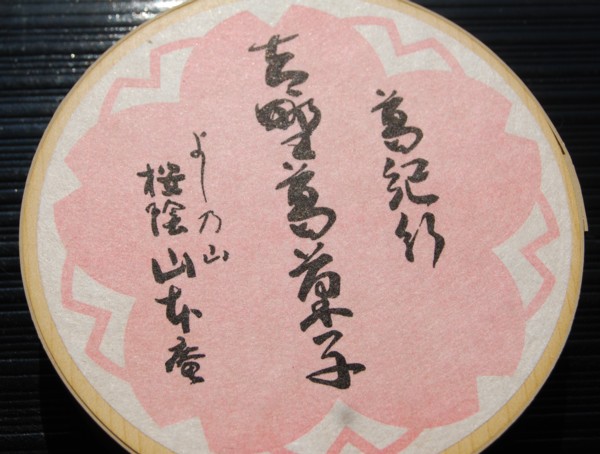 葛紀行
吉野葛菓子
よし乃山
桜陰 山本庵